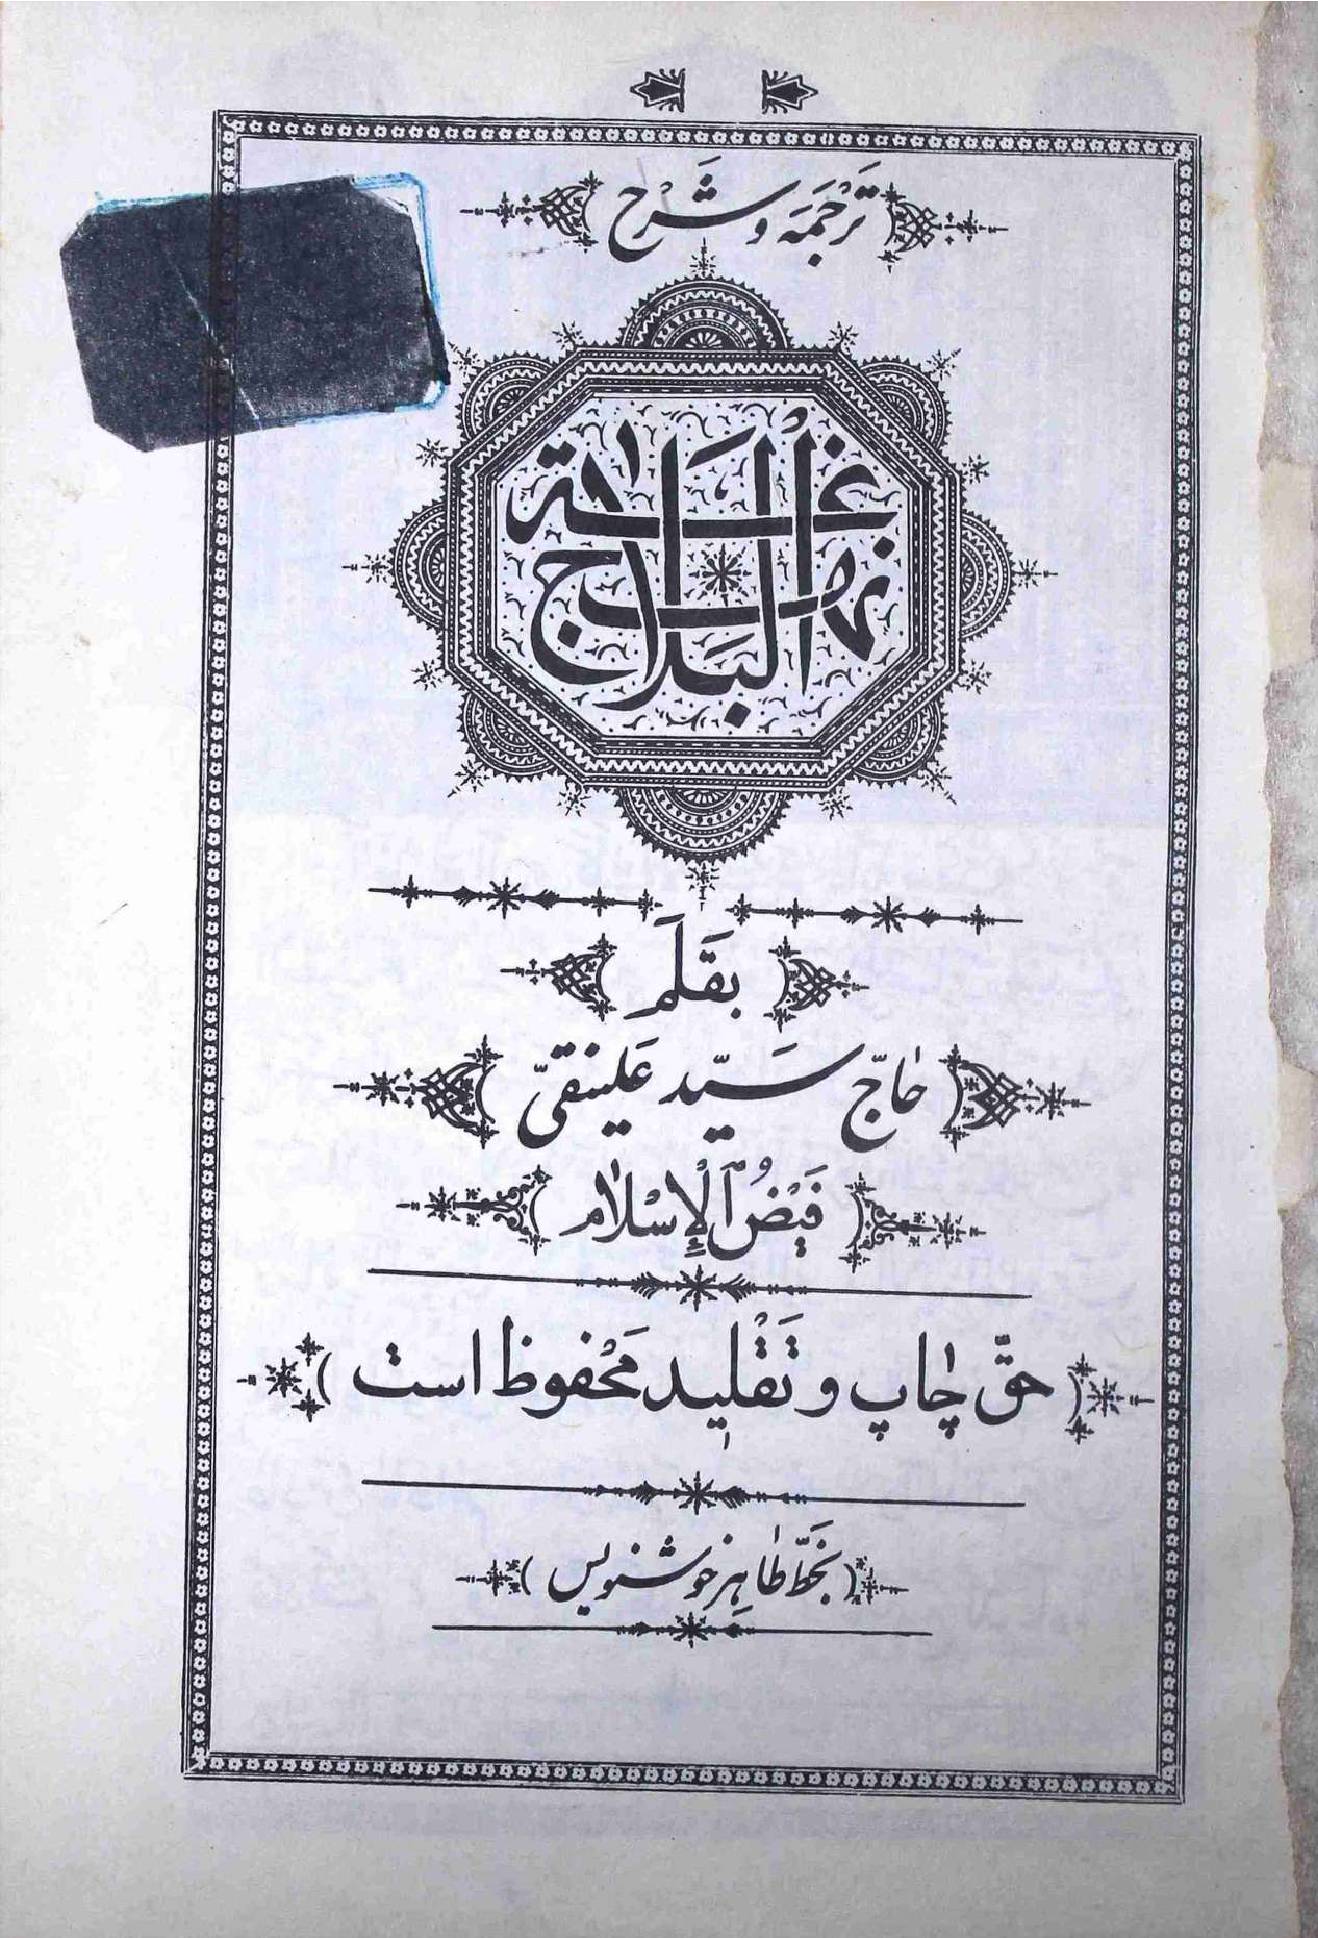 تَرْجَمَه وَ شَرْح
نهج البلاغة
بقَلَم
حاجّ سَیّد عَلینقیّ
فَیْضُ ٱلْإِسْلام
حقّ چاپ و تَقْلید مَحْفوظ است
بخَطّ طاهِر خوشنویس